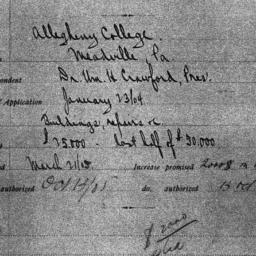 Allegheny College.
Meadville, Pa.
ondent Dr. Wm. H. Crawford, Pres.
Application January 23/04
Buildings, repairs &c
$25000. last half of $50.000
March 21/05 Increase promised
authorized Oct 14/05 do. authorized
$